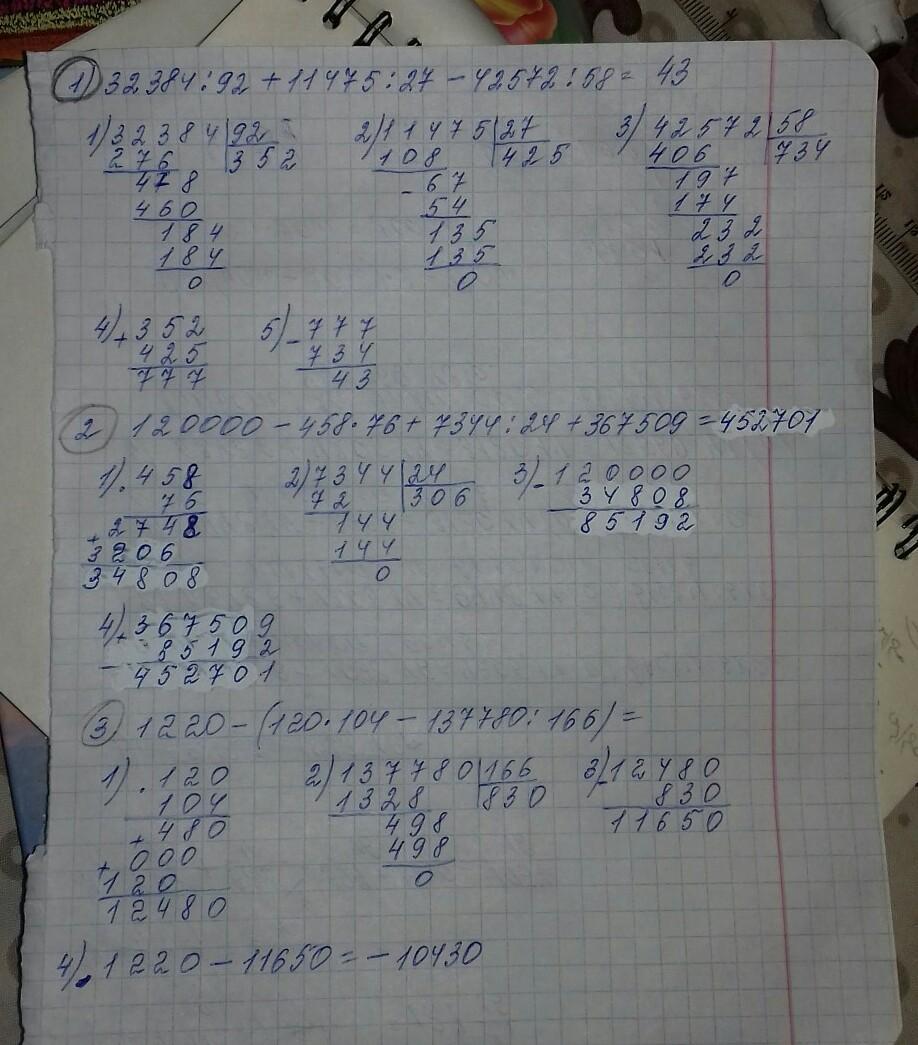 1) 32384:92 + 11475:27 - 42572:58 = 43
1) 32384 | 92 2) 11475 | 27 3) 42572 | 58
276 352 108 425 406 734
478 - 67 197
460 54 174
184 135 232
184 135 232
0 0 0
4) + 352 5) - 777
425 734
777 43
2 120000 - 458·76 + 7344:24 + 367509 = 452701
1) · 458 2) 7344 | 24 3) - 120000
76 72 306 34808
+ 2748 144 85192
3206 144
34808 0
4) + 367509
85192
452701
3 1220 - (120·104 - 137780:166) =
1) · 120 2) 137780 | 166 3) - 12480
104 1328 830 830
+ 480 498 11650
+ 000 498
120 0
12480
4) . 1220 - 11650 = -10430